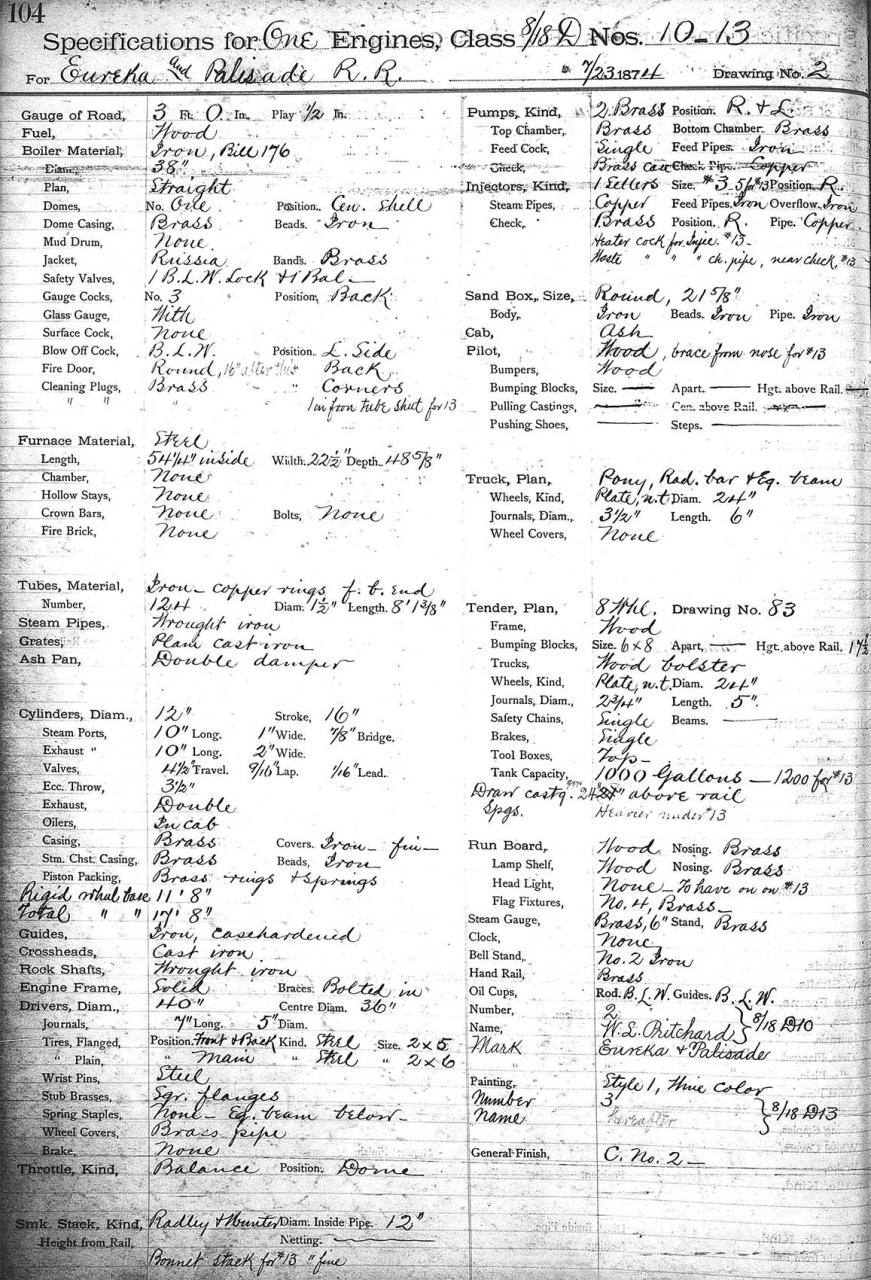 104
Specifications for One Engines, Class 8/18 D Nos. 10-13
For Eureka and Palisade R. R. 7/23 1874 Drawing No. 2
Gauge of Road, 3 Ft. 0 In. Play 1/2 In.
Fuel, Wood
Boiler Material, Iron, Bill 176
Diam., 38"
Plan, Straight
Domes, No. One Position. Cen. Shell
Dome Casing, Brass Beads. Iron
Mud Drum, None.
Jacket, Russia Bands. Brass
Safety Valves, 1 B.L.W. Lock & 1 Bal-
Gauge Cocks, No. 3 Position, Back
Glass Gauge, With
Surface Cock, None
Blow Off Cock, B.L.W. Position. L. Side
Fire Door, Round, 16" after this Back
Cleaning Plugs, Brass " Corners
" " " 1 in fron tube sheet for 13
Furnace Material, Steel
Length, 54 1/4" inside Width. 22 1/2" Depth. 48 5/8"
Chamber, None
Hollow Stays, None
Crown Bars, None Bolts, None
Fire Brick, None
Tubes, Material, Iron - copper rings f. b. end
Number, 124 Diam. 1 1/2" Length. 8' 1 3/8"
Steam Pipes, Wrought iron
Grates, Plain cast iron
Ash Pan, Double damper
Cylinders, Diam., 12" Stroke, 16"
Steam Ports, 10" Long. 1" Wide. 7/8" Bridge.
Exhaust " 10" Long. 2" Wide.
Valves, 4 1/2" Travel. 9/16" Lap. 1/16" Lead.
Ecc. Throw, 3 1/2"
Exhaust, Double
Oilers, In cab
Casing, Brass Covers. Iron - fin-
Stm. Chst. Casing, Brass Beads, Iron
Piston Packing, Brass rings & Springs
Rigid wheel base 11' 8"
Total " " 17' 8"
Guides, Iron, casehardened
Crossheads, Cast iron
Rock Shafts, Wrought iron
Engine Frame, Solid Braces. Bolted in
Drivers, Diam., 40" Centre Diam. 36"
Journals, 7" Long. 5" Diam.
Tires, Flanged, Position. Front & Back Kind. Steel Size. 2x5
" Plain, " Main " Steel " 2x6
Wrist Pins, Steel
Stub Brasses, Sqr. flanges
Spring Staples, None - Eq. beam below-
Wheel Covers, Brass pipe
Brake, None
Throttle, Kind, Balance Position. Dome
Smk. Stack, Kind, Radley & Hunter Diam. Inside Pipe. 12"
Height from Rail, Netting.
Bonnet stack for #13 " fine
Pumps, Kind, 2 Brass Position. R. & L.
Top Chamber, Brass Bottom Chamber. Brass
Feed Cock, Single Feed Pipes. Iron
Check, Brass case Check Pipe. Copper
Injectors, Kind, 1 Sellers Size. #3. 5 for #13 Position. R.
Steam Pipes, Copper Feed Pipes. Iron Overflow. Iron
Check, Brass Position. R. Pipe. Copper
Heater cock for Injec. #13-
Waste " " " ch. pipe, near check, #13
Sand Box, Size, Round, 21 5/8"
Body, Iron Beads. Iron Pipe. Iron
Cab, Ash
Pilot, Wood, brace from nose for #13
Bumpers, Wood
Bumping Blocks, Size. Apart. Hgt. above Rail.
Pulling Castings, Cen. above Rail.
Pushing Shoes, Steps.
Truck, Plan, Pony, Rad. bar & Eq. beam
Wheels, Kind, Plate, n.t. Diam. 24"
Journals, Diam., 3 1/2" Length. 6"
Wheel Covers, None
Tender, Plan, 8 Whl. Drawing No. 83
Frame, Wood
Bumping Blocks, Size. 6x8 Apart, Hgt. above Rail. 17 1/2
Trucks, Wood bolster
Wheels, Kind, Plate, n.t. Diam. 24"
Journals, Diam., 2 3/4" Length. 5".
Safety Chains, Single Beams.
Brakes, Single
Tool Boxes, Top-
Tank Capacity, 1000 Gallons - 1200 for #13
Draw castg. 24" above rail
Spgs. Heavier under #13
Run Board, Wood Nosing. Brass
Lamp Shelf, Wood Nosing. Brass
Head Light, None - To have on on #13
Flag Fixtures, No. 4, Brass-
Steam Gauge, Brass, 6" Stand, Brass
Clock, None
Bell Stand, No. 2 Iron
Hand Rail, Brass
Oil Cups, Rod. B.L.W. Guides. B.L.W.
Number, 2
Name, W.L. Pritchard } 8/18 D10
Mark Eureka & Palisade
Painting, Style 1, Wine color
Number 3
Name hereafter } 8/18 D13
General Finish, C. No. 2-